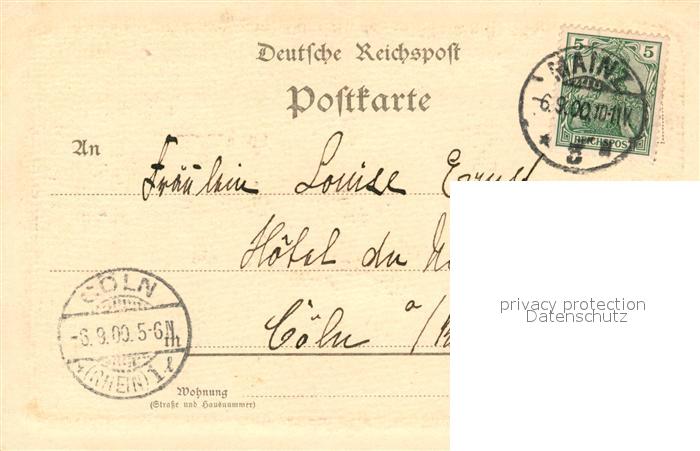 Deutsche Reichspost
Postkarte
5 5
REICHSPOST
MAINZ
-6.9.00.10-11V.
* 5 *
An
Fräulein Louise
Hôtel du
Cöln a/
CÖLN
-6.9.00.5-6N
(RHEIN) 1.
Wohnung
(Straße und Hausnummer)
privacy protection
Datenschutz